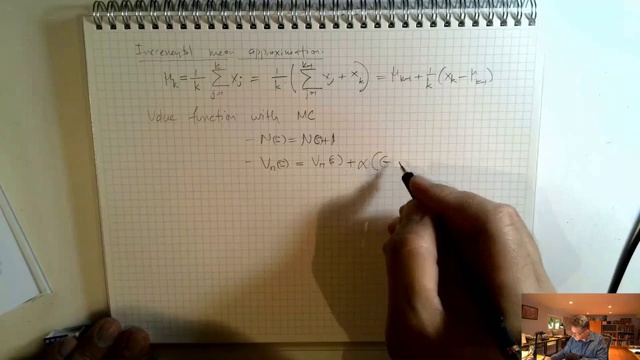 Incremental mean approximation:
μ_k = 1/k ∑_{j=1}^{k} x_j = 1/k ( ∑_{j=1}^{k-1} x_j + x_k ) = μ_{k-1} + 1/k (x_k − μ_{k-1})
Value function with MC
- N(s) = N(s)+1
- V_π(s) = V_π(s) + α(G